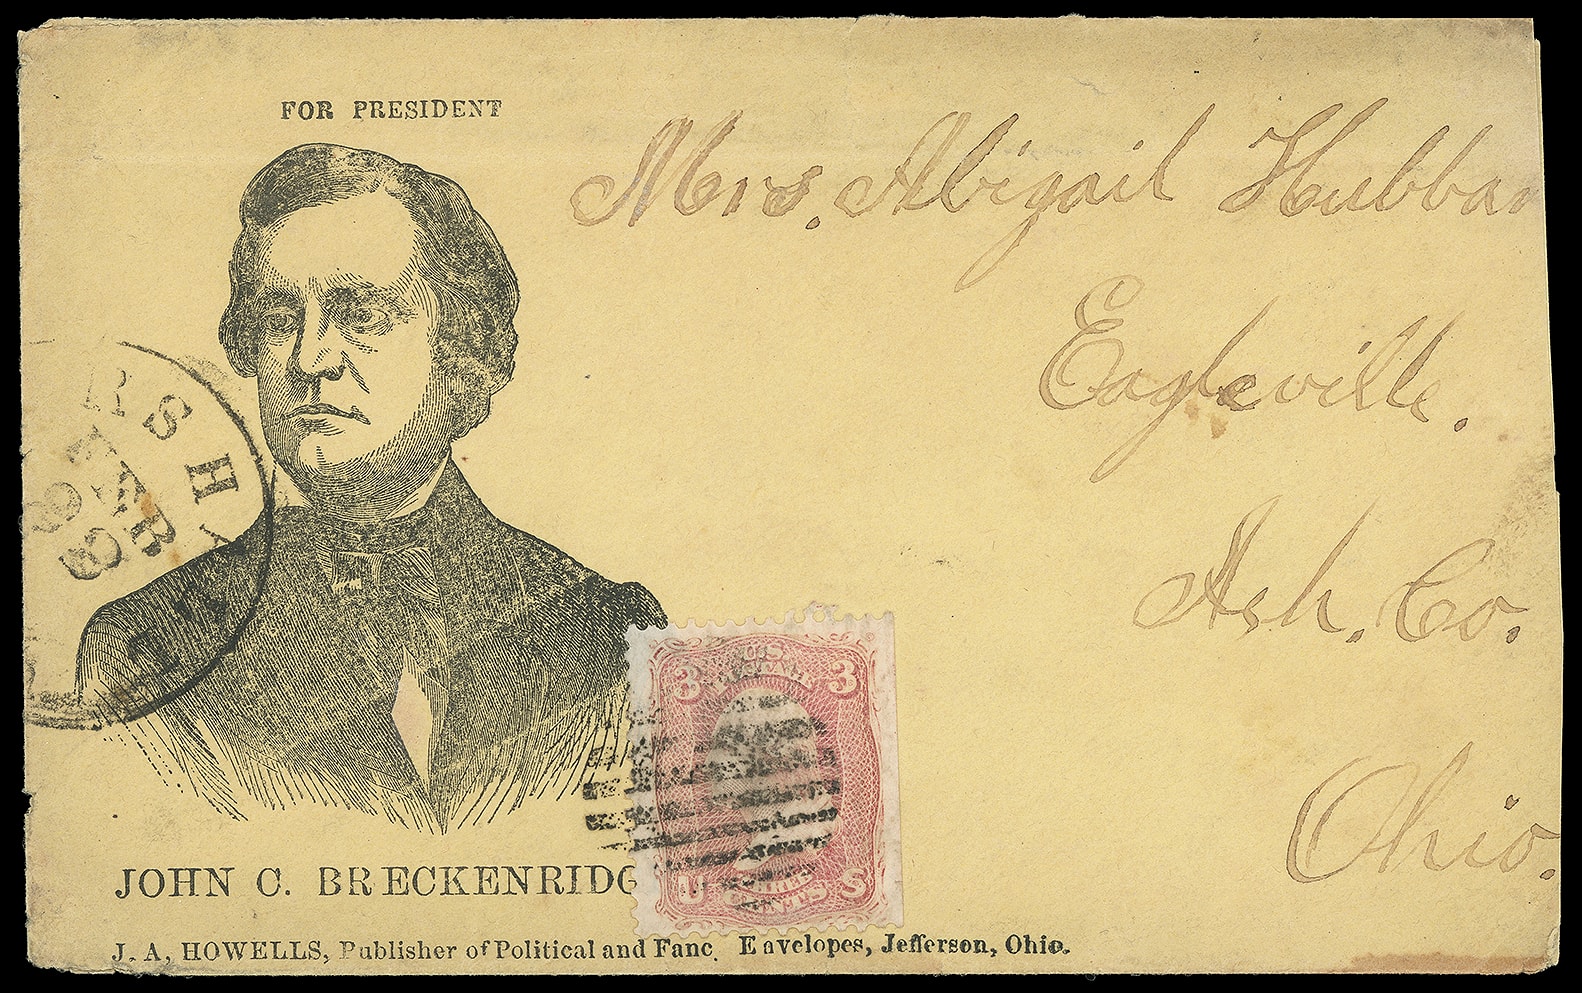 FOR PRESIDENT
Mrs. Abigail Hubbar
Eagleville.
Ash. Co.
Ohio.
RSHA
3 U.S. 3
U THREE S
CENTS
JOHN C. BRECKENRIDG
J. A, HOWELLS, Publisher of Political and Fanc. Envelopes, Jefferson, Ohio.